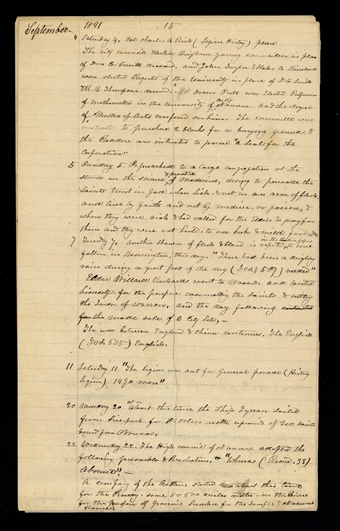 September 1841 15
4 Saturday 4, Col Charles C Rich (Legion History) peace
The city council elected Brigham Young councillor in place
of Don C. Smith deceased, and John Taylor & Heber C Kimball
were elected Regents of the University in place of D C Smith
& R. B. Thompson, deceased. Orson Pratt was elected Professor
of Mathematics in the University of Nauvoo. And the degree
of Master of Arts conferred on him. The committee were
instructed to purchase 2 blocks for a burying ground &
the Recorder was instructed to procure "a Seal for the
Corporation"
5 Sunday 5. I preached to a large congregation at the
stand on the science & practice of medicine, desiring to persuade the
Saints trust in God when sick & not in an arm of flesh
and live by faith and not by medicine, or poison, &
when they were sick & had called for the Elders to pray for
them and they were not healed, to use herbs & mild food
7 Tuesday 7. Another shower of flesh & blood is reported to have
in the Boston papers
fallen in Kensington, this day. "There had been a drizzling
rain during a great part of the day (304, 507) veiled"
Elder Willard Richards went to Warsaw and located
himself for the purpose
the town of Warren, and the day following
for the made sale of city lots,
The war between England & China continues. The English
(304 505) English.
11 Saturday 11. "The Legion was out for General parade (History
Legion) 1490 men"
20 Monday 20. About this time the Ship Tyrean sailed
from Liverpool for N Orleans with upwards of 200 saints
bound for Nauvoo.
22 Wednesday 22. The High council of Nauvoo adopted the
following Preamble & Resolution, "Whereas (Record, 38)
Absence"
A company of the Brethren started about this time
for the Pinery some 500 or 600 miles north on the river
for the purpose of procuring lumber for the Temple & Nauvoo
House